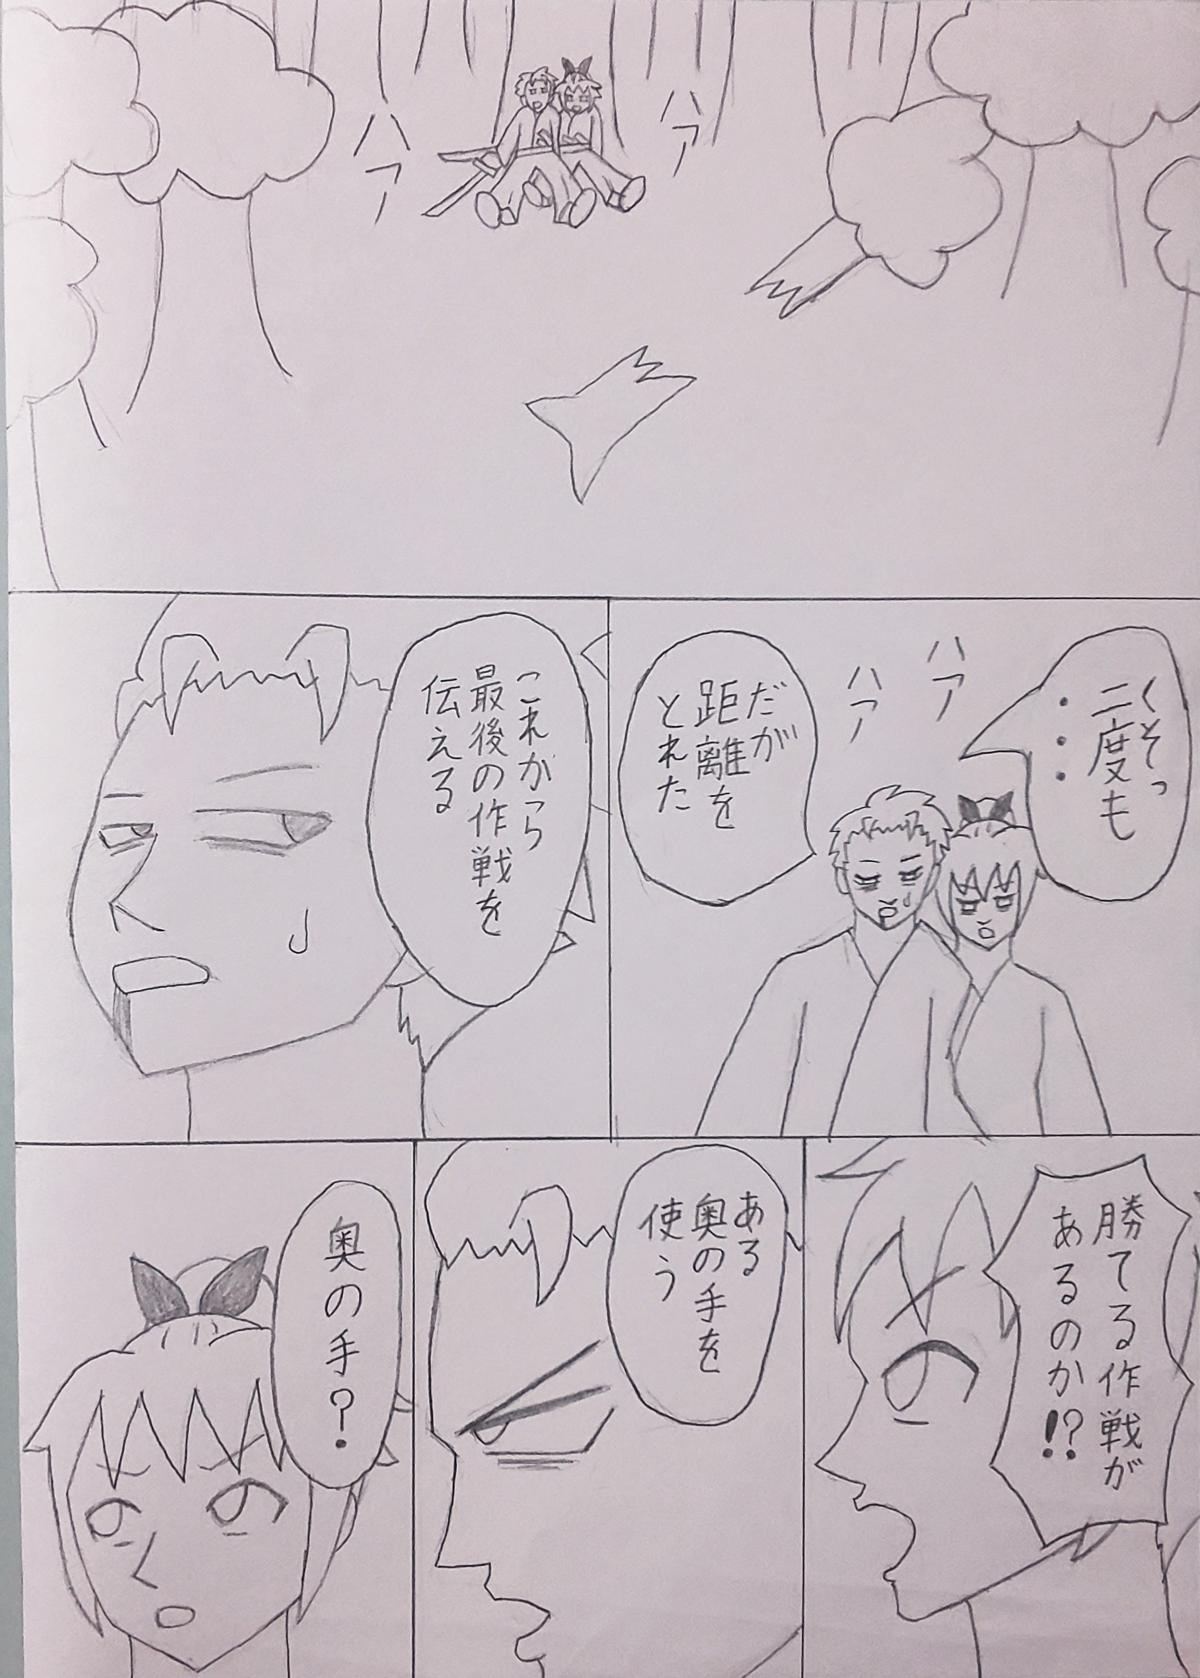 ハァ
ハァ
くそっ
二度も
・・・
ハァ
ハァ
だが
距離を
とれた
これから
最後の作戦を
伝える
勝てる作戦が
あるのか!?
ある
奥の手を
使う
奥の手?